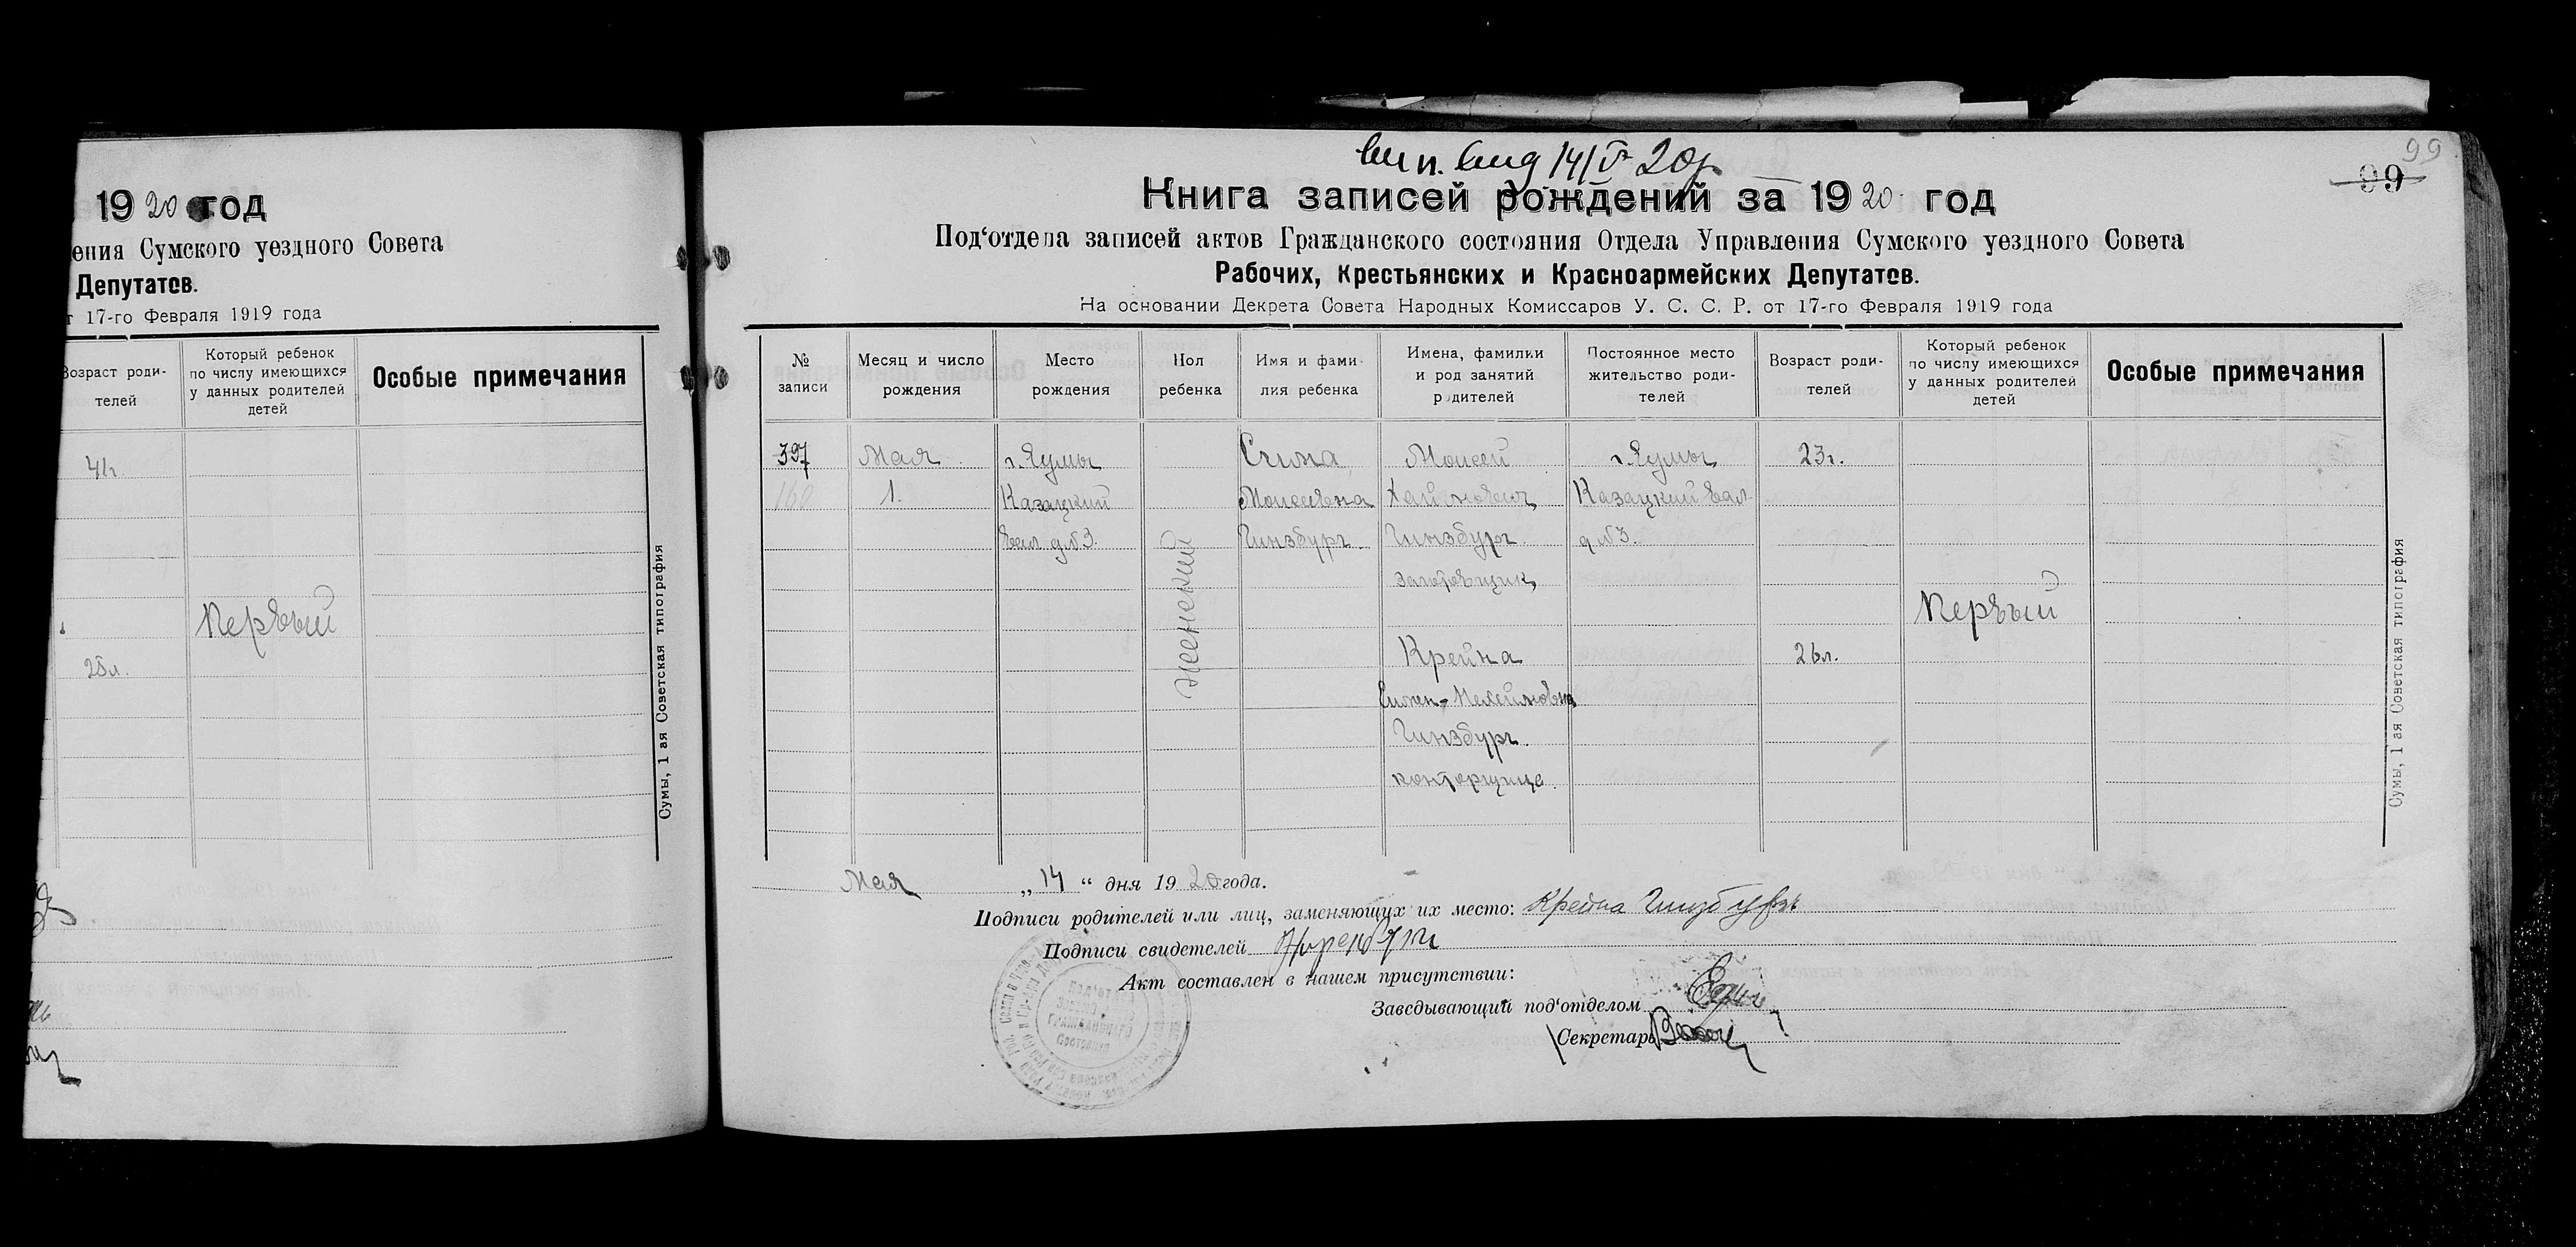 1920 год
ения Сумского уездного Совета
Депутатов.
т 17-го Февраля 1919 года
Возраст роди-
телей
Который ребенок
по числу имеющихся
у данных родителей
детей
Особые примечания
41г.
Первый
Сумы, 1 ая Советская типография
14/V 20г.
99
99
Книга записей рождений за 1920 год
Под‘отдела записей актов Гражданского состояния Отдела Управления Сумского уездного Совета
Рабочих, Крестьянских и Красноармейских Депутатов.
На основании Декрета Совета Народных Комиссаров У. С. С. Р. от 17-го Февраля 1919 года
№
записи
Месяц и число
рождения
Место
рождения
Пол
ребенка
Имя и фами-
лия ребенка
Имена, фамилии
и род занятий
родителей
Постоянное место
жительство роди-
телей
Возраст роди-
телей
Который ребенок
по числу имеющихся
у данных родителей
детей
Особые примечания
397
160
Мая
1.
г. Сумы
Казацкий
вал д№3.
женский
Моисеевна
Гинзбург.
Моисей
Хаймович
Гинзбург
заготовщик
Крейна
Гинзбург.
конторщица.
г. Сумы
Казацкий вал
д№3.
23г.
26л.
Первый
Сумы, 1 ая Советская типография
Мая „14“ дня 1920 года.
Подписи родителей или лиц, заменяющих их место: Крейна Гинзбург
Подписи свидетелей
Акт составлен в нашем присутствии:
Заведывающий под‘отделом
Секретарь
Под‘отдел
Гражданского
Состояния